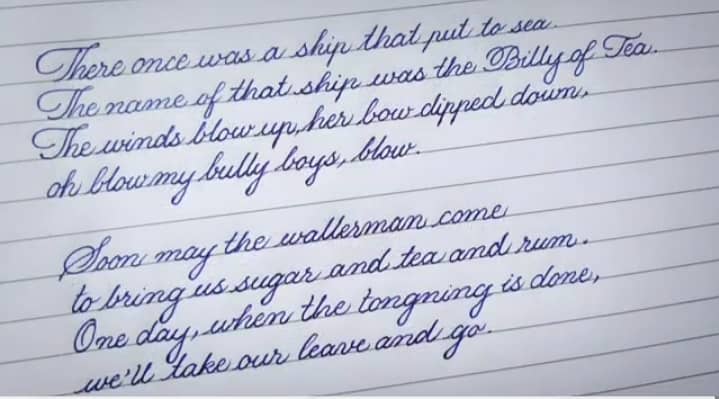 There once was a ship that put to sea.
The name of that ship was the Billy of Tea.
The winds blow up, her bow dipped down,
oh blow my bully boys, blow.
Soon may the wallerman come
to bring us sugar and tea and rum.
One day, when the tongning is done,
we'll take our leave and go.